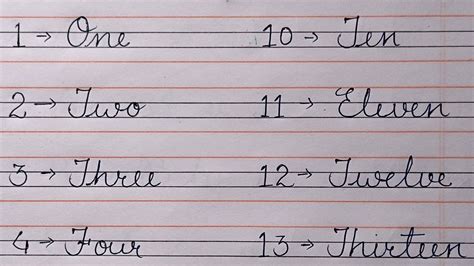 1 → One 10 → Ten
2 → Two 11 → Eleven
3 → Three 12 → Twelve
4 → Four 13 → Thirteen